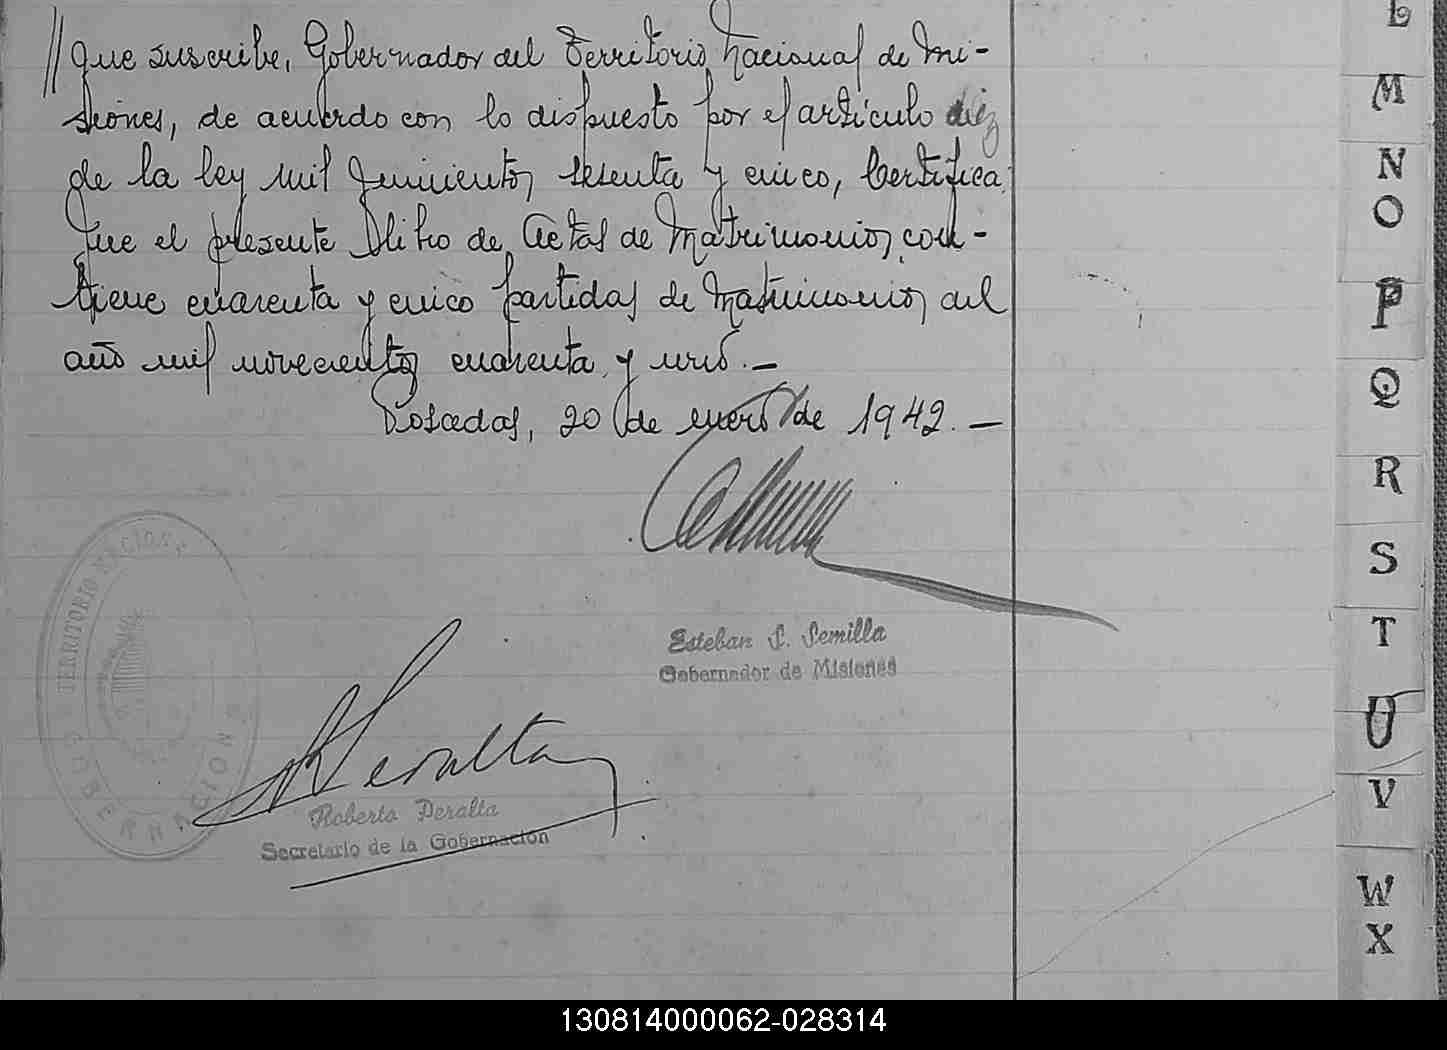 //que suscribe, Gobernador del Territorio Nacional de Mi-
siones, de acuerdo con lo dispuesto por el artículo diez
de la ley mil quinientos sesenta y cinco, Certifica:
que el presente libro de Actas de Matrimonios, con-
tiene cuarenta y cinco partidas de Matrimonios del
año mil novecientos cuarenta y uno.—
Posadas, 20 de enero de 1942.—
Esteban S. Semilla
Gobernador de Misiones
TERRITORIO NACIONAL
GOBERNACION
Peralta
Roberto Peralta
Secretario de la Gobernación
L
M
N
O
P
Q
R
S
T
U
V
W
X
130814000062-028314